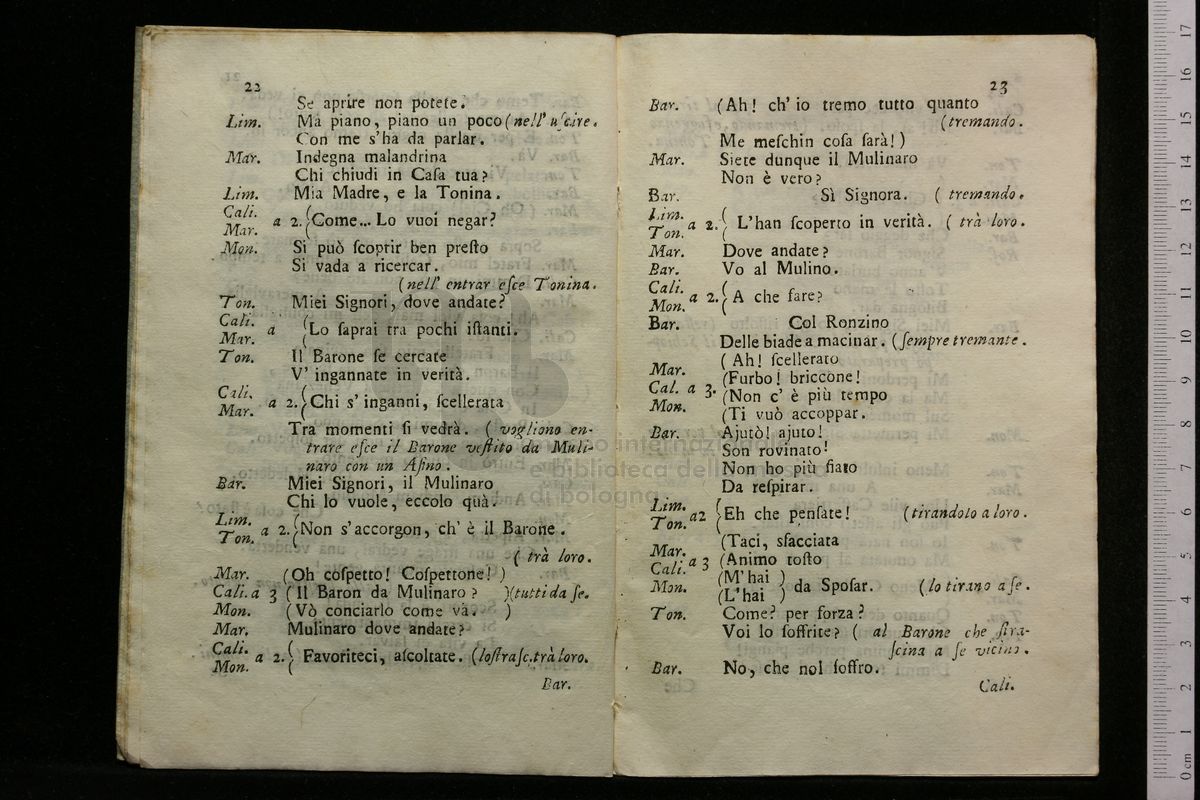 22
Se aprire non potete.
Lim. Ma piano, piano un poco (nell' uſcire.
Con me s'ha da parlar.
Mar. Indegna malandrina
Chi chiudi in Caſa tua?
Lim. Mia Madre, e la Tonina.
Cali.
Mar. a 2. (Come... Lo vuoi negar?
Mon. Si può ſcoprir ben preſto
Si vada a ricercar.
(nell' entrar eſce Tonina.
Ton. Miei Signori, dove andate?
Cali.
Mar. a (Lo ſaprai tra pochi iſtanti.
Ton. Il Barone ſe cercate
V' ingannate in verità.
Cali.
Mar. a 2. (Chi s' inganni, ſcellerata
Tra momenti ſi vedrà. ( vogliono en-
trare eſce il Barone veſtito da Muli-
naro con un Aſino.
Bar. Miei Signori, il Mulinaro
Chi lo vuole, eccolo quà.
Lim.
Ton. a 2. (Non s'accorgon, ch' è il Barone.
( trà loro.
Mar. (Oh coſpetto! Coſpettone! )
Cali. a 3 ( Il Baron da Mulinaro ? )(tutti da ſe.
Mon. (Vò conciarlo come và. )
Mar. Mulinaro dove andate?
Cali.
Mon. a 2. ( Favoriteci, aſcoltate. (loſtraſc.trà loro.
Bar.
23
Bar. (Ah! ch' io tremo tutto quanto
(tremando.
Me meſchin coſa ſarà!)
Mar. Siete dunque il Mulinaro
Non è vero?
Bar. Sì Signora. ( tremando.
Lim.
Ton. a 2. ( L'han ſcoperto in verità. ( trà loro.
Mar. Dove andate?
Bar. Vo al Mulino.
Cali.
Mon. a 2. ( A che fare?
Bar. Col Ronzino
Delle biade a macinar. (ſempre tremante.
( Ah! ſcellerato
Mar. (Furbo! briccone!
Cal. a 3. (Non c' è più tempo
Mon. (Ti vuò accoppar.
Bar. Ajutò! ajuto!
Son rovinato!
Non ho più fiato
Da reſpirar.
Lim.
Ton. a2 (Eh che penſate! (tirandolo a loro.
(Taci, sfacciata
Mar.
Cali. a 3 (Animo toſto
Mon. (M' hai )
(L' hai ) da Spoſar. (lo tirano a ſe.
Ton. Come? per forza?
Voi lo ſoffrite? ( al Barone che ſtra-
ſcina a ſe vicino.
Bar. No, che nol ſoffro.
Cali.
museo internazionale
e biblioteca della
di bologna
0 cm 1 2 3 4 5 6 7 8 9 10 11 12 13 14 15 16 17